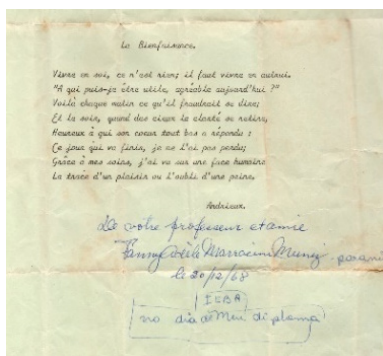 La Bienfaisance.
Vivre en soi, ce n'est rien; il faut vivre en autrui.
"A qui puis-je être utile, agréable aujourd'hui ?"
Voilà chaque matin ce qu'il faudrait se dire;
Et le soir, quand des cieux la clarté se retire,
Heureux à qui son coeur tout bas a répondu :
Ce jour qui va finir, je ne l'ai pas perdu;
Grâce à mes soins, j'ai vu sur une face humaine
La trace d'un plaisir ou l'oubli d'une peine.
Andrieux.
De votre professeur et amie
Fanny Marracini Muniz
le 20/12/68
IEBA
no dia de meu diploma